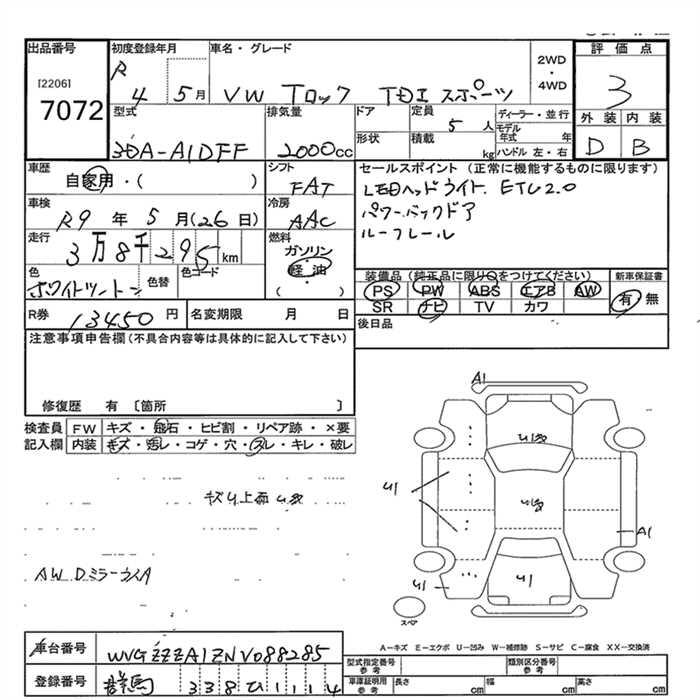 出品番号
[2206]
7072
初度登録年月
R 4 5月
車名・グレード
VW Tロック TDI スポーツ
2WD
・
4WD
評価点
3
外装 内装
D B
型式
3DA-A1DFF
排気量
2000cc
ドア
定員
5人
ディーラー・並行
形状
積載
kg
モデル年式 年
ハンドル 左・右
車歴
自家用・( )
シフト
FAT
車検
R9年5月(26日)
冷房
AAC
走行
3万8千295km
燃料
ガソリン
軽油
( )
色
ホワイトツートン
色替
色コード
R券 13450円
名変期限 月 日
セールスポイント (正常に機能するものに限ります)
LEDヘッドライト. ETC2.0
パワーバックドア
ルーフレール
装備品 (純正品に限り○をつけてください)
新車保証書
PS PW ABS エアB AW
有・無
SR ナビ TV カワ
後日品
注意事項申告欄(不具合内容等は具体的に記入して下さい)
修復歴 有 〔箇所 〕
検査員
記入欄
FW キズ・飛石・ヒビ割・リペア跡・×要
内装 キズ・汚レ・コゲ・穴・スレ・キレ・破レ
AW Dミラーウイ A
A1
U1
U1
A1
U1
スペア
A－キズ E－エクボ U－凹み W－補修跡 S－サビ C－腐食 XX－交換済
車台番号
WVGZZZA1ZNV088285
登録番号
群馬 338ひ1114
型式指定番号
参考
類別区分番号
参考
車庫証明用
参考
長さ cm
幅 cm
高さ cm